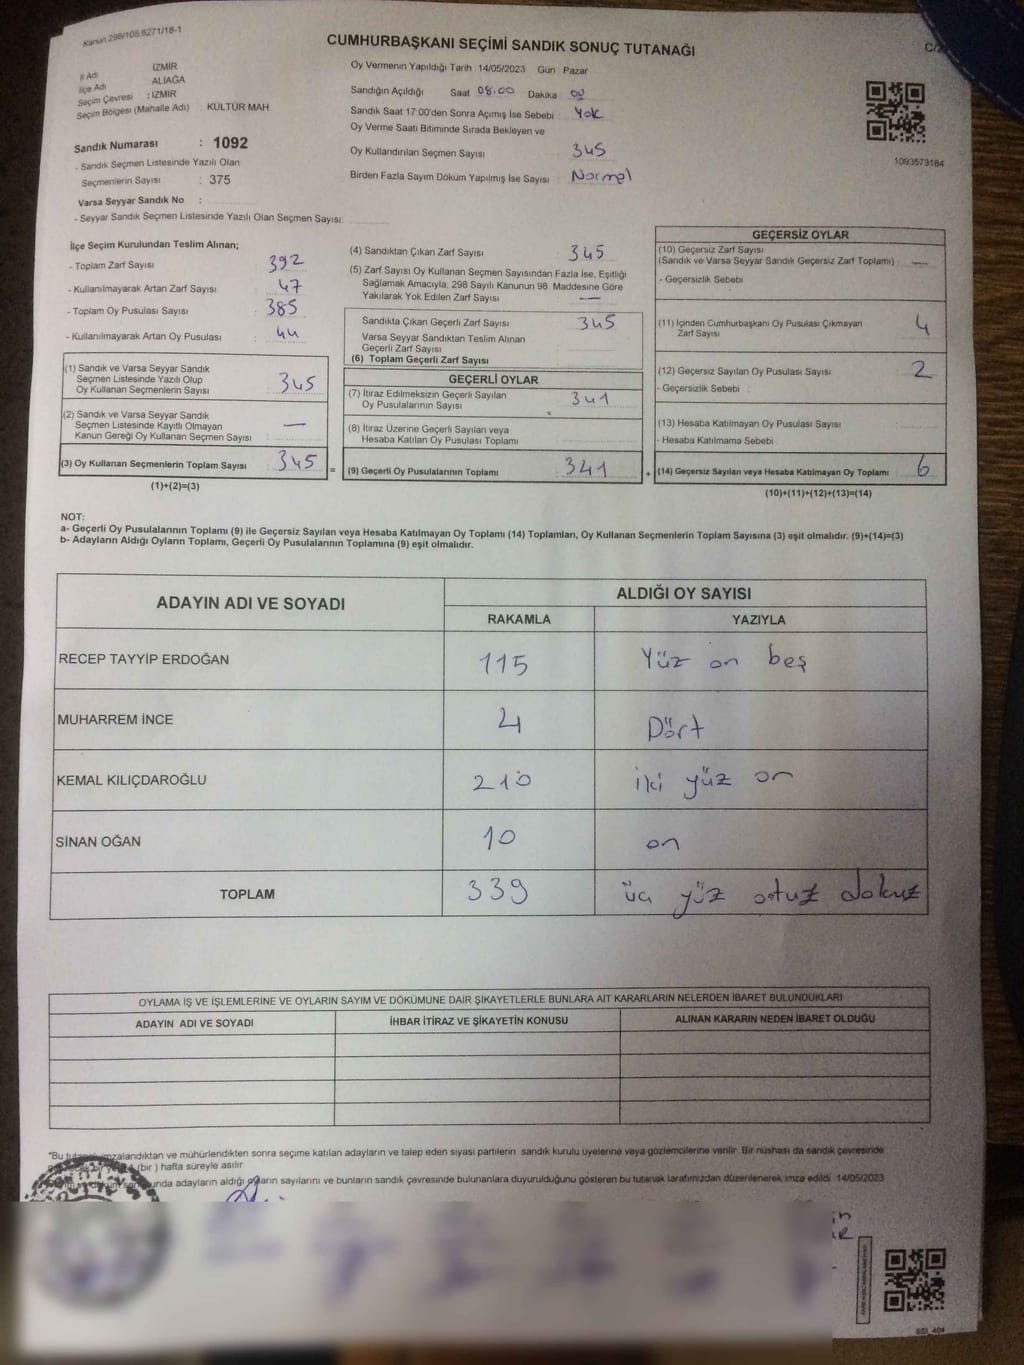 Kanun 298/105,6271/18-1
CUMHURBAŞKANI SEÇİMİ SANDIK SONUÇ TUTANAĞI
İl Adı İZMİR
İlçe Adı ALİAĞA
Seçim Çevresi : İZMİR
Seçim Bölgesi (Mahalle Adı) : KÜLTÜR MAH
Sandık Numarası : 1092
- Sandık Seçmen Listesinde Yazılı Olan
Seçmenlerin Sayısı : 375
Varsa Seyyar Sandık No :
- Seyyar Sandık Seçmen Listesinde Yazılı Olan Seçmen Sayısı:
Oy Vermenin Yapıldığı Tarih : 14/05/2023 Gün : Pazar
Sandığın Açıldığı Saat 08:00 Dakika 00
Sandık Saat 17:00'den Sonra Açımış İse Sebebi : Yok
Oy Verme Saati Bitiminde Sırada Bekleyen ve
Oy Kullandırılan Seçmen Sayısı 345
Birden Fazla Sayım Döküm Yapılmış İse Sayısı : Normal
1093573184
İlçe Seçim Kurulundan Teslim Alınan;
- Toplam Zarf Sayısı : 392
- Kullanılmayarak Artan Zarf Sayısı : 47
- Toplam Oy Pusulası Sayısı : 385
- Kullanılmayarak Artan Oy Pusulası : 44
(1) Sandık ve Varsa Seyyar Sandık
Seçmen Listesinde Yazılı Olup
Oy Kullanan Seçmenlerin Sayısı : 345
(2) Sandık ve Varsa Seyyar Sandık
Seçmen Listesinde Kayıtlı Olmayan
Kanun Gereği Oy Kullanan Seçmen Sayısı : —
(3) Oy Kullanan Seçmenlerin Toplam Sayısı : 345 =
(1)+(2)=(3)
(4) Sandıktan Çıkan Zarf Sayısı : 345
(5) Zarf Sayısı Oy Kullanan Seçmen Sayısından Fazla İse, Eşitliği
Sağlamak Amacıyla, 298 Sayılı Kanunun 98. Maddesine Göre
Yakılarak Yok Edilen Zarf Sayısı : —
Sandıkta Çıkan Geçerli Zarf Sayısı : 345
Varsa Seyyar Sandıktan Teslim Alınan
Geçerli Zarf Sayısı
(6) Toplam Geçerli Zarf Sayısı
GEÇERLİ OYLAR
(7) İtiraz Edilmeksizin Geçerli Sayılan
Oy Pusulalarının Sayısı : 341
(8) İtiraz Üzerine Geçerli Sayılan veya
Hesaba Katılan Oy Pusulası Toplamı
(9) Geçerli Oy Pusulalarının Toplamı : 341 +
GEÇERSİZ OYLAR
(10) Geçersiz Zarf Sayısı
(Sandık ve Varsa Seyyar Sandık Geçersiz Zarf Toplamı) : —
- Geçersizlik Sebebi
(11) İçinden Cumhurbaşkanı Oy Pusulası Çıkmayan
Zarf Sayısı : 4
(12) Geçersiz Sayılan Oy Pusulası Sayısı : 2
- Geçersizlik Sebebi :
(13) Hesaba Katılmayan Oy Pusulası Sayısı :
- Hesaba Katılmama Sebebi
(14) Geçersiz Sayılan veya Hesaba Katılmayan Oy Toplamı : 6
(10)+(11)+(12)+(13)=(14)
NOT:
a- Geçerli Oy Pusulalarının Toplamı (9) ile Geçersiz Sayılan veya Hesaba Katılmayan Oy Toplamı (14) Toplamları, Oy Kullanan Seçmenlerin Toplam Sayısına (3) eşit olmalıdır. (9)+(14)=(3)
b- Adayların Aldığı Oyların Toplamı, Geçerli Oy Pusulalarının Toplamına (9) eşit olmalıdır.
ADAYIN ADI VE SOYADI ALDIĞI OY SAYISI
RAKAMLA YAZIYLA
RECEP TAYYİP ERDOĞAN 115 Yüz on beş
MUHARREM İNCE 4 Dört
KEMAL KILIÇDAROĞLU 210 iki yüz on
SİNAN OĞAN 10 on
TOPLAM 339 üç yüz otuz dokuz
OYLAMA İŞ VE İŞLEMLERİNE VE OYLARIN SAYIM VE DÖKÜMÜNE DAİR ŞİKAYETLERLE BUNLARA AİT KARARLARIN NELERDEN İBARET BULUNDUKLARI
ADAYIN ADI VE SOYADI İHBAR İTİRAZ VE ŞİKAYETİN KONUSU ALINAN KARARIN NEDEN İBARET OLDUĞU
*Bu tutanak imzalandıktan ve mühürlendikten sonra seçime katılan adayların ve talep eden siyasi partilerin sandık kurulu üyelerine veya gözlemcilerine verilir. Bir nüshası da sandık çevresinde
(bir ) hafta süreyle asılır.
adayların aldığı oyların sayılarını ve bunların sandık çevresinde bulunanlara duyurulduğunu gösteren bu tutanak tarafımızdan düzenlenerek imza edildi. 14/05/2023